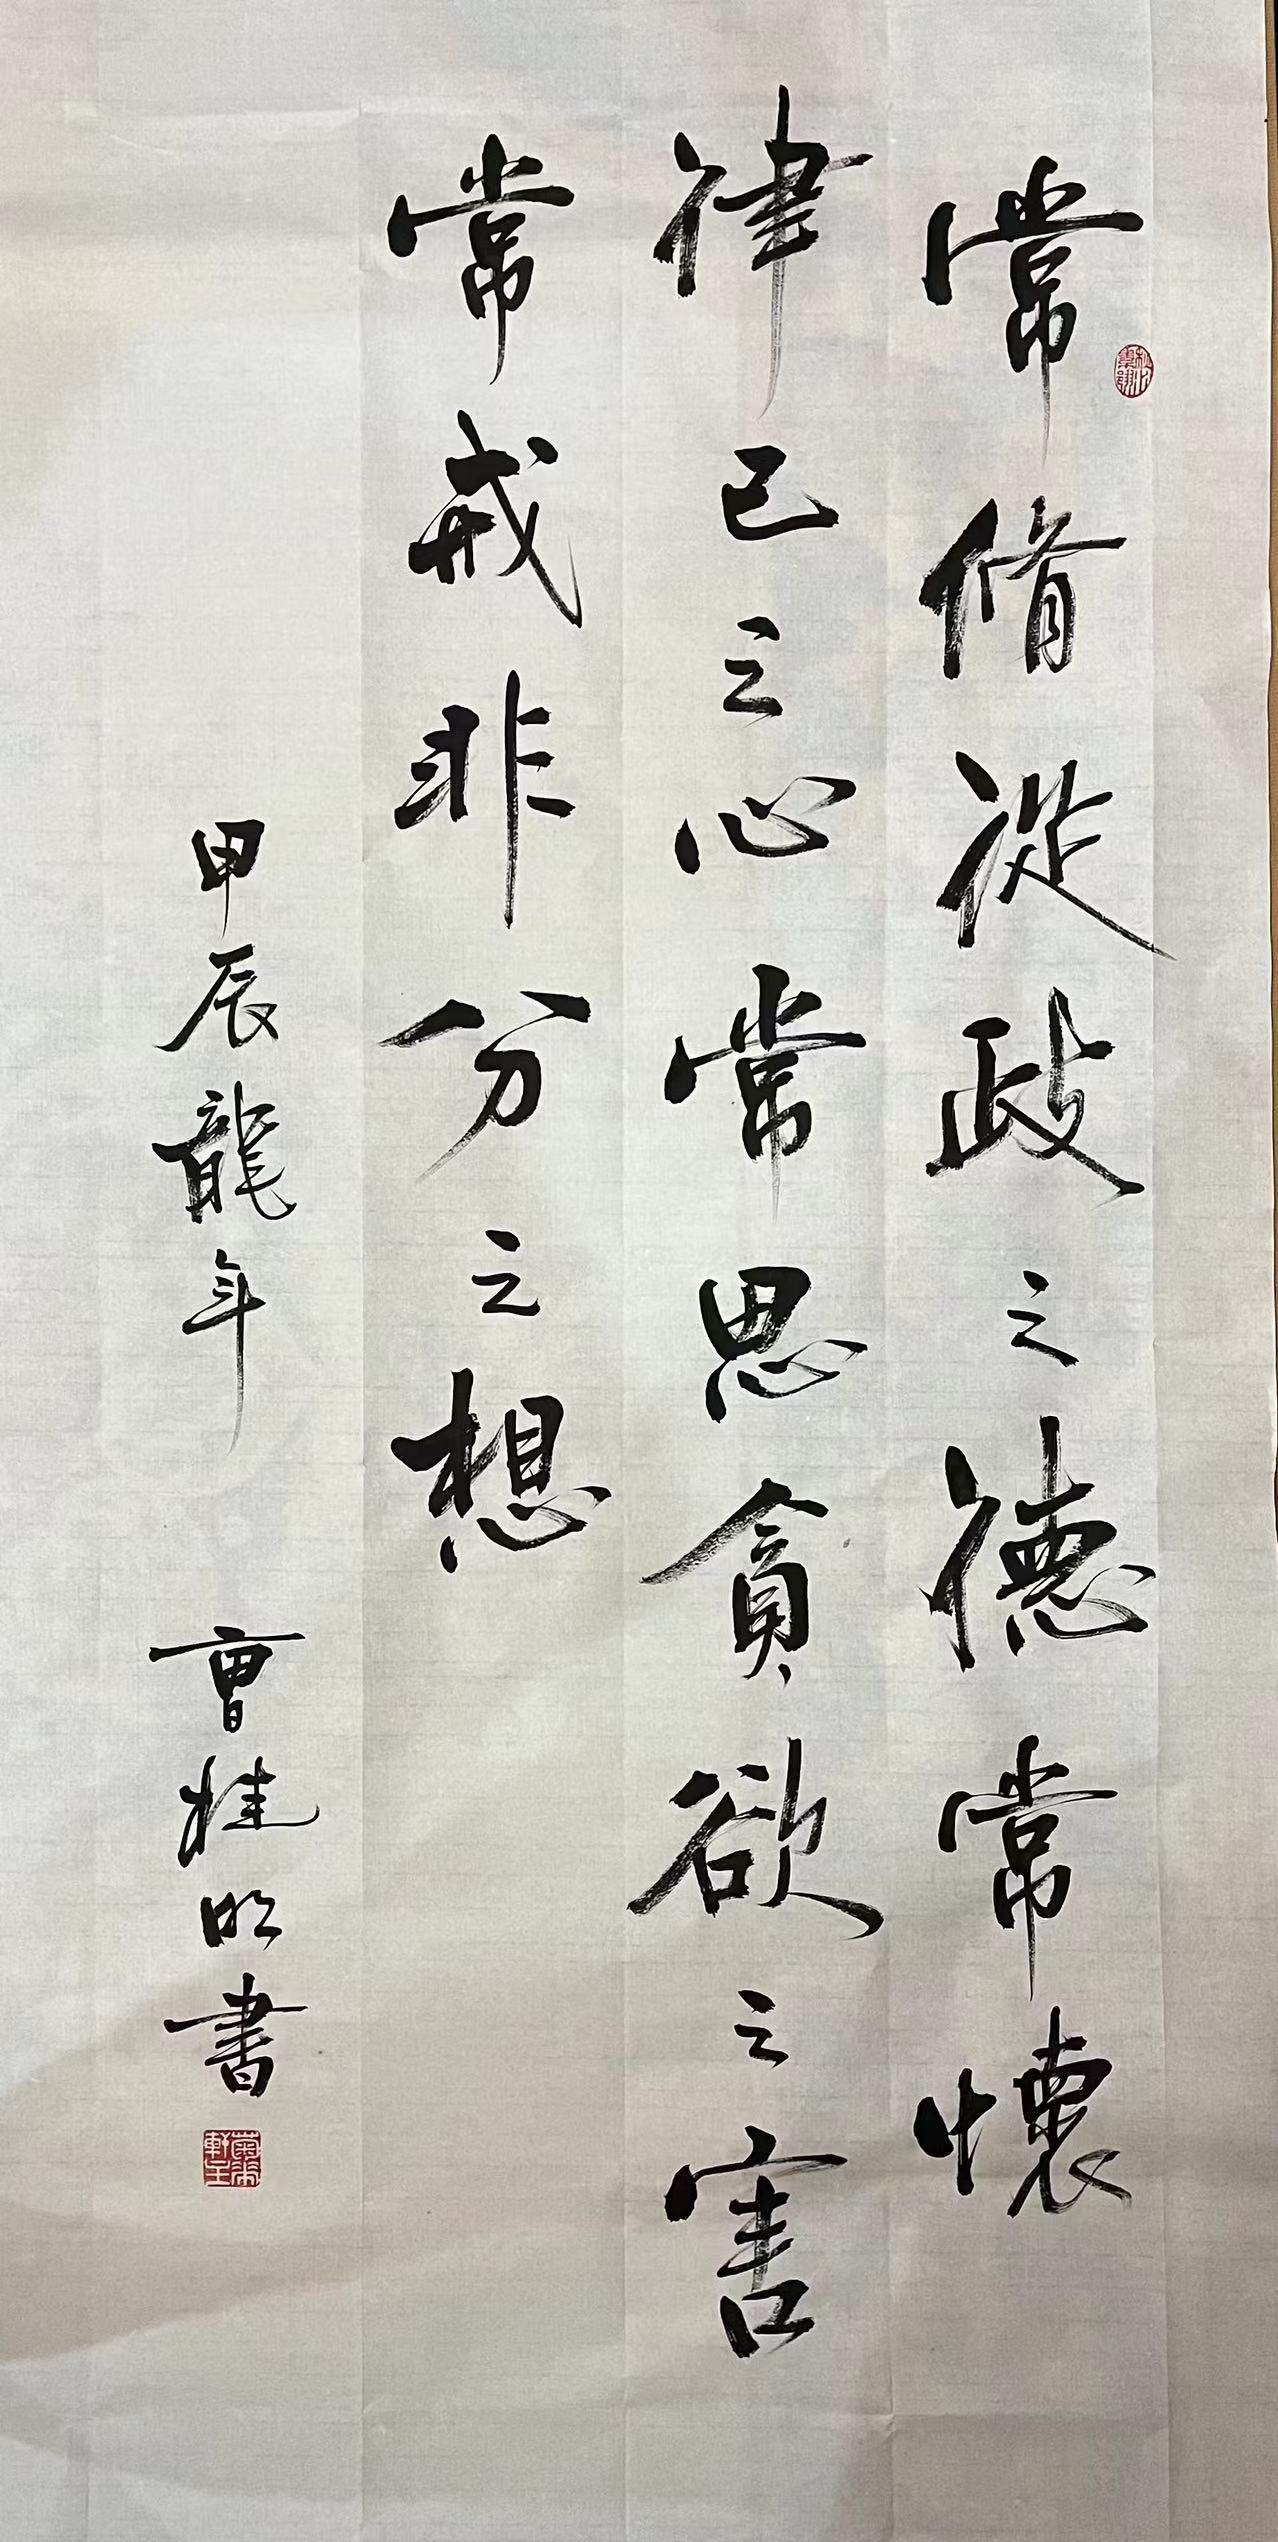 常修從政之德常懷
律己之心常思貪欲之害
常戒非分之想
甲辰龍年 曹桂明書